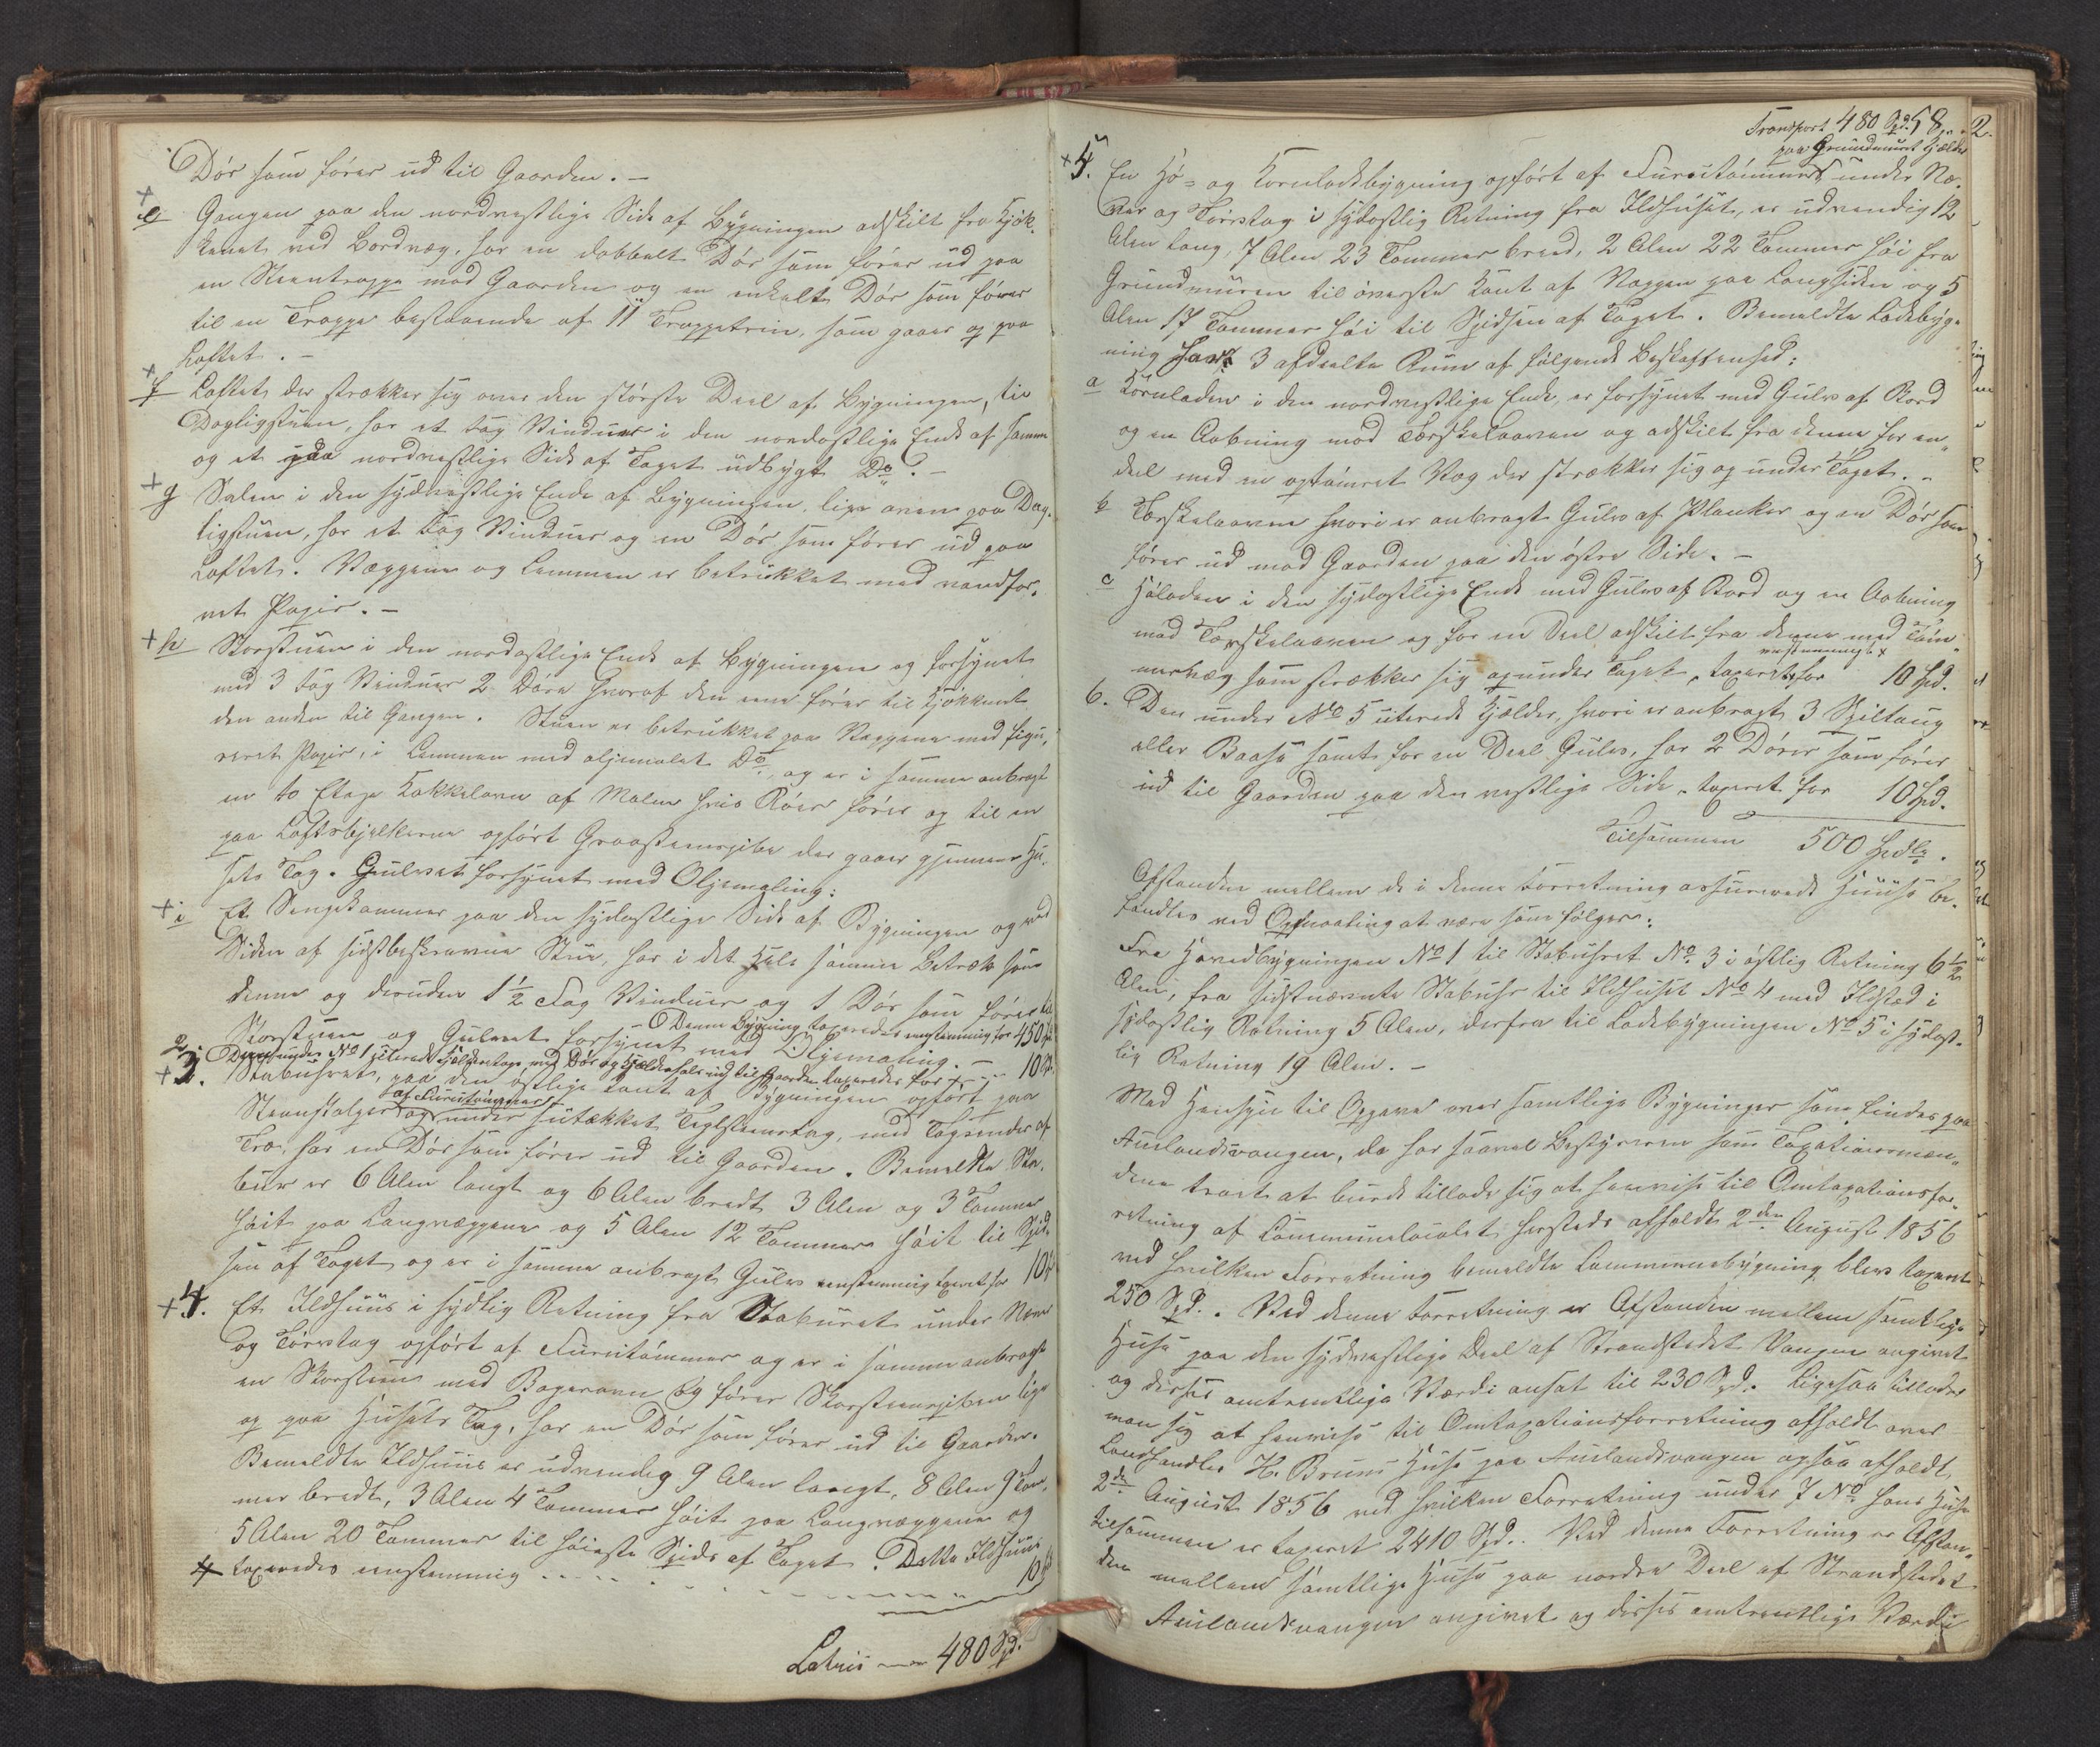 Dör som förer ud til Gaarden. –
e Gangen paa den nordvestlige Side af Bygningen adskilt fra Kjök-
kenet ved Bordvæg, har en dobbelt Dör som förer ud paa
en Steentrappe mod Gaarden og en enkelt Dör som förer
til en Trappe bestaaende af 11 Trappetrin, som gaaer op paa
Loftet. –
f Loftet der strækker sig over den störste Deel af Bygningen, til
Dagligstuen, har et Fag Vinduer i den nordostlige Ende af samme
og et paa nordvestlige Side af Taget udbygt Do. –
g Salen i den sydvestlige Ende af Bygningen, lige oven paa Dag-
ligstuen, har et Fag Vinduer og en Dör som förer ud paa
Loftet. Væggene og Lemmen er betrukket med vandfar-
vet Papir. –
h Storstuen i den nordostlige Ende af Bygningen og forsynet
med 3 Fag Vinduer 2 Döre hvoraf den ene förer til Kjökkenet
den anden til Gangen. Stuen er betrukket paa Væggene med figu-
reret Papir, i Lemmen med oljemalet Do, og er i samme anbragt
en to Etage Kakkelovn af Malm hvis Rör förer op til en
paa Loftsbjelkerne opfört Graasteenspibe der gaaer gjennem Hu-
sets Tag. Gulvet forsynet med Oljemaling:
i Et Sengekammer paa den sydostlige Side af Bygningen og ved
Siden af sidstbeskrevne Stue, har i det Hele samme Betræk som
denne og desuden 1 1/2 Fag Vinduer og 1 Dör som förer til
Storstuen og Gulvet forsynet med Oljemaling. –
Denne Bygning taxeredes eenstemmig for 450
2. Den under No 1 citerede Kjælderetage, med Dör og Kjælderhals ud til Gaarden taxeredes for 10
3. Stabuhret, paa den östlige Kant af Bygningen opfört paa
Steenstolper af Furutömmer og under sutækket Teglsteenstag, med Tagrender af
Træ, har en Dör som förer ud til Gaarden. Bemeldte Sta-
buur er 6 Alen langt og 6 Alen bredt 3 Alen og 3 Tommer
höit paa Langvæggene og 5 Alen 12 Tommer höit til Spid-
sen af Taget og er i samme anbragt Gulv eenstemmig taxeret for 10
4. Et Ildhuus i sydlig Retning fra Staburet under Næver
og Törvtag opfört af Furutömmer og er i samme anbragt
en Skorsteen med Bagerovn og förer Skorsteenspiben lige
op paa Husets Tag, har en Dör som förer ud til Gaarden.
Bemeldte Ildhuus er udvendig 9 Alen langt, 8 Alen 9 Tom-
mer bredt, 3 Alen 4 Tommer höit paa Langvæggene og
5 Alen 20 Tommer til höieste Spids af Taget. Dette Ildhuus
taxeredes eenstemmig 10
Latus 480 Spd.
Transport 480 Spd. 58 2.
paa Grundmuret Kjælder
5. En Hö- og Kornladebygning opfört af Furutömmer under Næ-
ver og Törvtag i sydostlig Retning fra Ildhuset, er udvendig 12
Alen lang, 7 Alen 23 Tommer breed, 2 Alen 22 Tommer höi fra
Grundmuren til överste Kant af Væggen paa Langsiden og 5
Alen 17 Tommer höi til Spidsen af Taget. Bemeldte Ladebyg-
ning har 3 afdeelte Rum af fölgende Beskaffenhed:
a Kornladen i den nordvestlige Ende, er forsynet med Gulv af Bord
og en Aabning mod Tærskelaaven og adskilt fra denne for en
deel med en optömret Væg der strækker sig op under Taget. –
b Tærskelaaven hvori er anbragt Gulv af Planker og en Dör som
förer ud mod Gaarden paa den östre Side. –
c Höladen i den sydostlige Ende med Gulv af Bord og en Aabning
mod Tærskelaaven og for en Deel adskilt fra denne med Töm-
mervæg som strækker sig op under Taget, taxeret eenstemmigt for 10 Spd.
6. Den under No 5 citerede Kjælder, hvori er anbragt 3 Spiltaug
eller Baase samt for en Deel Gulv, har 2 Dörer som förer
ud til Gaarden paa den vestlige Side, taxeret for 10 Spd.
Tilsammen 500 Spdlr.
Afstanden mellem de i denne Forretning assurerede Huuse be-
fandtes ved Opmaaling at være som fölger:
Fra Hovedbygningen No 1 til Stabuhret No 3 i östlig Retning 6 1/2
Alen, fra sidstnævnte Stabuhr til Ildhuset No 4 med Ildsted i
sydostlig Retning 5 Alen, derfra til Ladebygningen No 5 i sydost-
lig Retning 19 Alen. –
Med Hensyn til Opgave over samtlige Bygninger som findes paa
Aurlandsvangen, da har saavel Bestyreren som Taxationsmæn-
dene troet at burde tillade sig at henvise til Omtaxationsfor-
retning af Communelocalet hersteds afholdt 2den August 1856
ved hvilken Forretning bemeldte Communebygning blev taxeret
250 Spd. Ved denne Forretning er Afstanden mellem samtlige
Huse paa den sydvestlige Deel af Strandstedet Vangen angivet
og disses omtrentlige Værdi ansat til 230 Spd. Ligesaa tillader
man sig at henvise til Omtaxationsforretning afholdt over
Landhandler H. Bruns Huse paa Aurlandsvangen ogsaa afholdt
2de August 1856 ved hvilken Forretning under 7 No hans Huse
tilsammen er taxeret 2410 Spd. Ved denne Forretning er Afstan-
den mellem samtlige Huse paa nordre Deel af Strandstedet
Aurlandsvangen angivet og disses omtrentlige Værdi